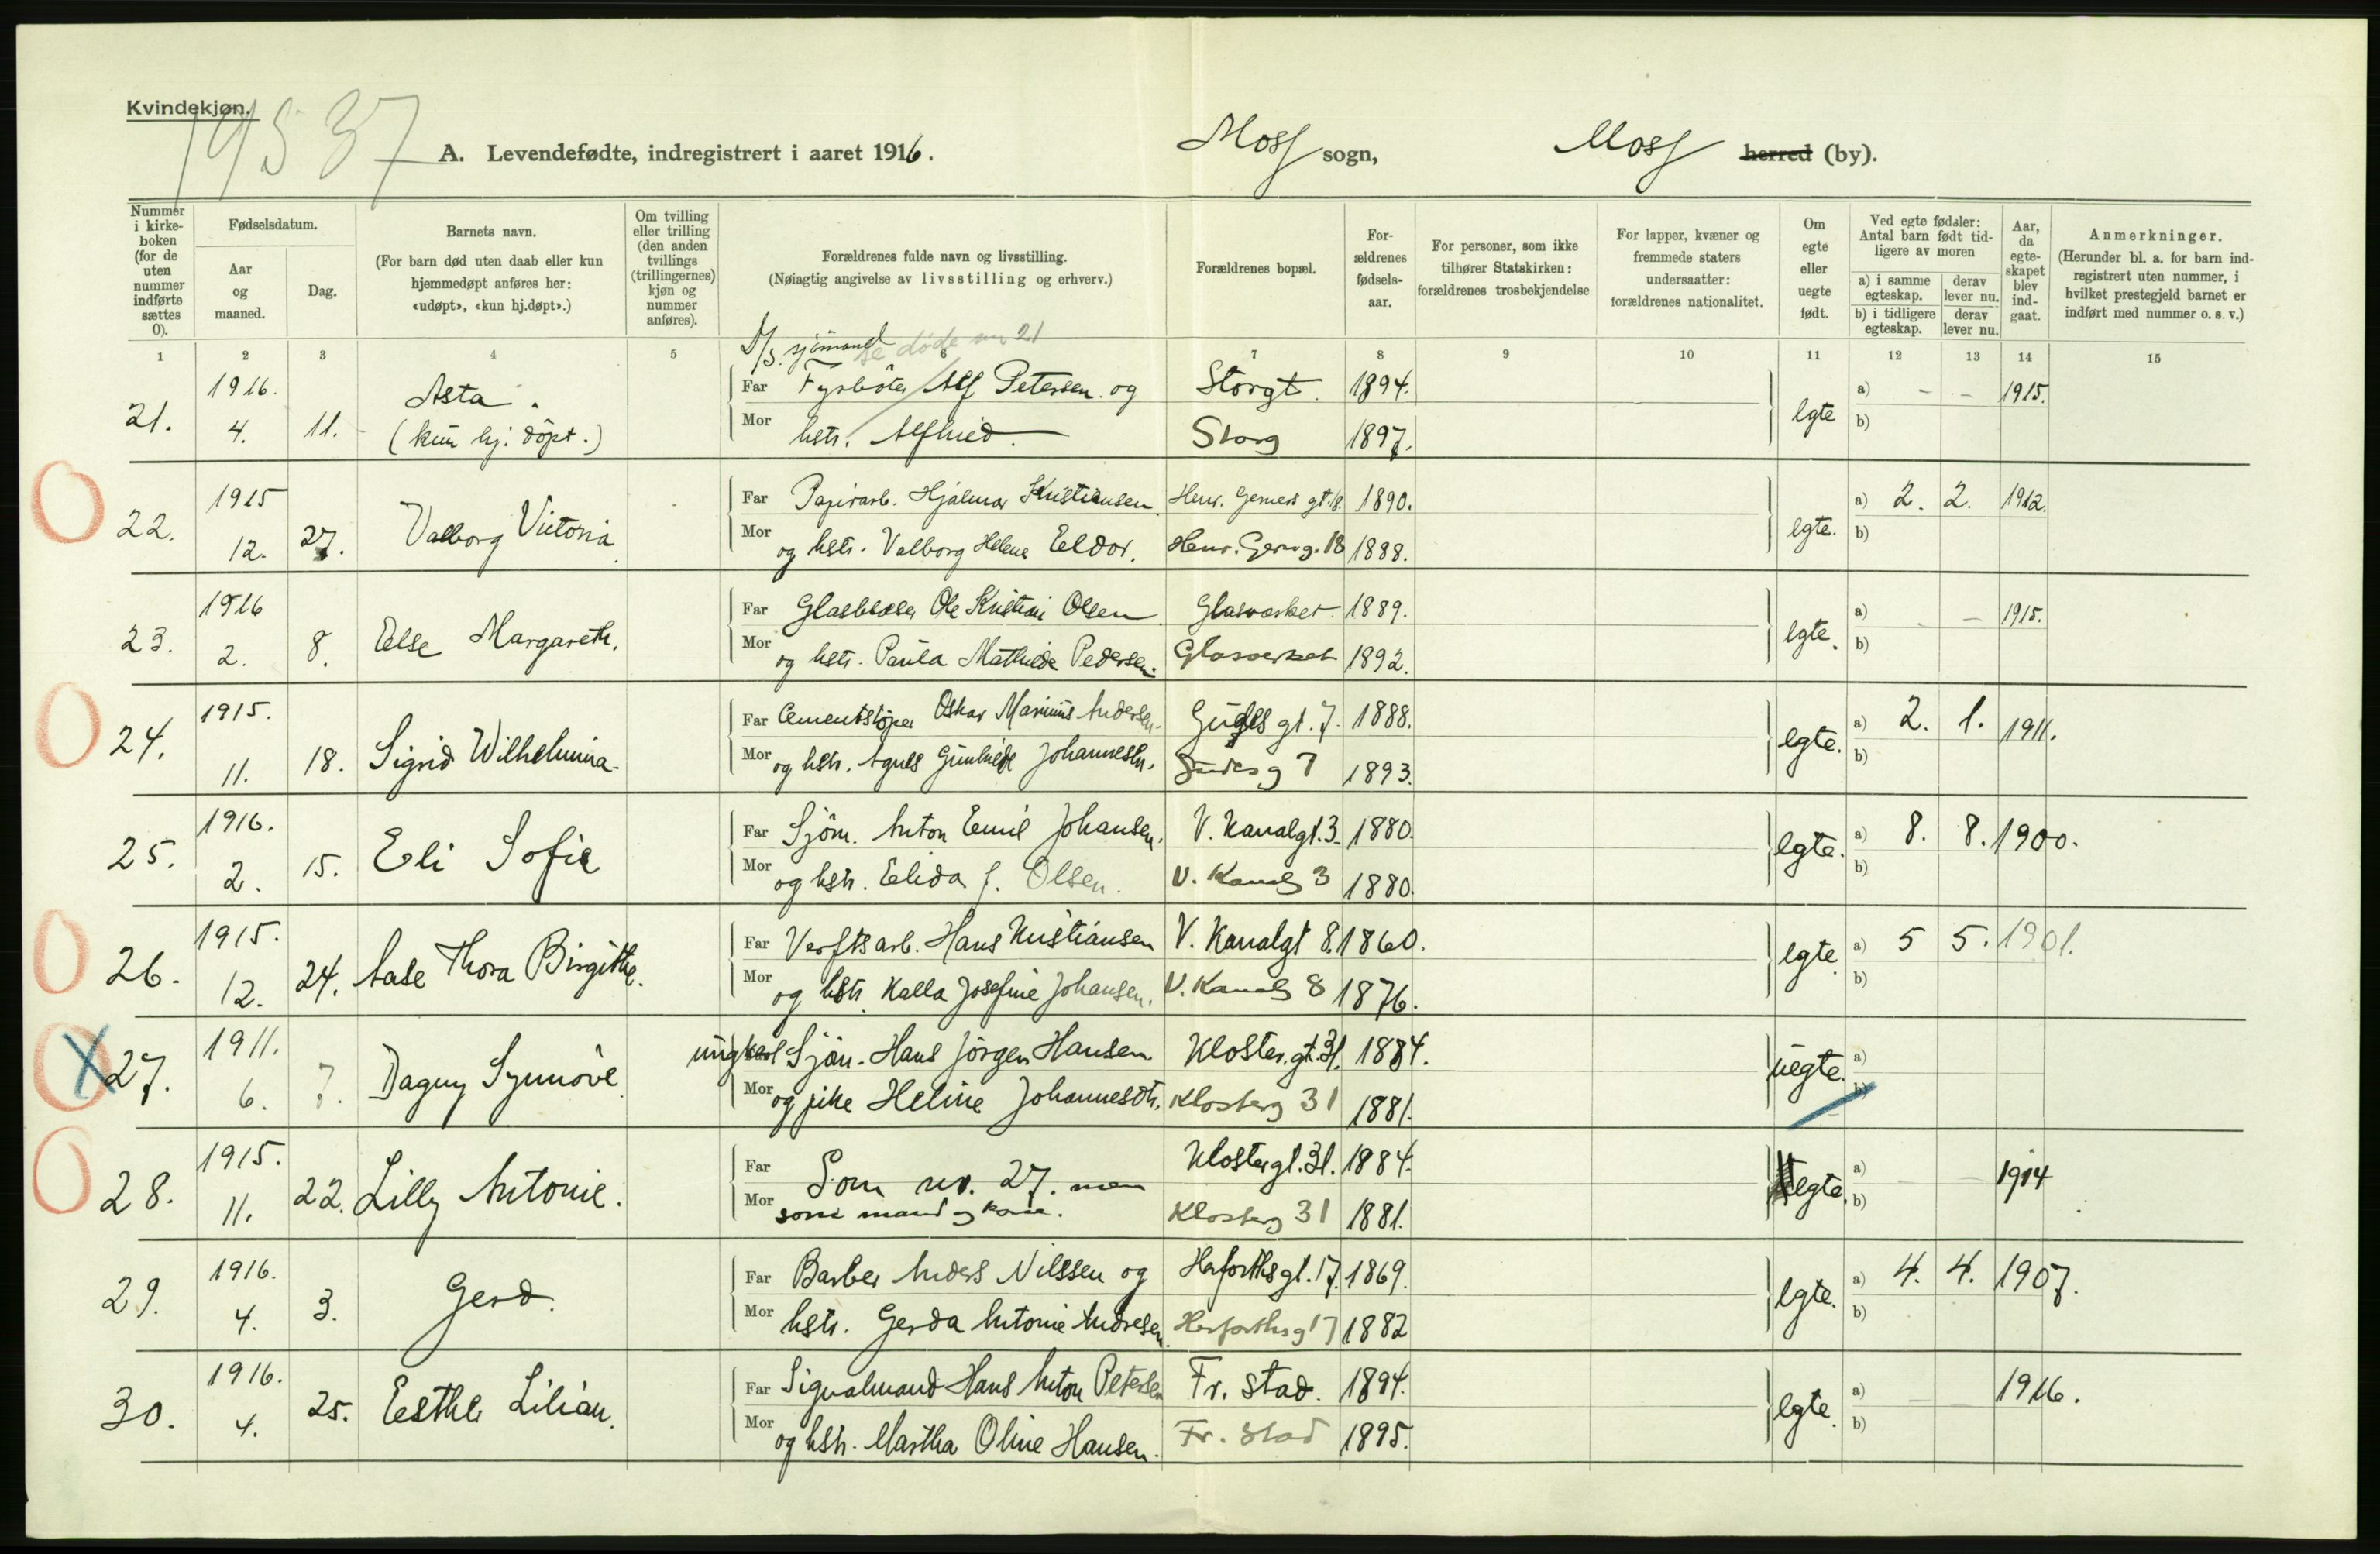 Kvindekjøn.
19537
A. Levendefødte, indregistrert i aaret 1916.
Moss sogn, Moss herred (by).
Nummer i kirke-boken (for de uten nummer indførte sættes 0).
Fødselsdatum.
Aar og maaned.
Dag.
Barnets navn.
(For barn død uten daab eller kun hjemmedøpt anføres her: «udøpt», «kun hj.døpt».)
Om tvilling eller trilling (den anden tvillings (trillingernes) kjøn og nummer anføres).
Forældrenes fulde navn og livsstilling.
(Nøiagtig angivelse av livsstilling og erhverv.)
Forældrenes bopæl.
For-ældrenes fødsels-aar.
For personer, som ikke tilhører Statskirken: forældrenes trosbekjendelse
For lapper, kvæner og fremmede staters undersaatter: forældrenes nationalitet.
Om egte eller uegte født.
Ved egte fødsler: Antal barn født tid-ligere av moren
a) i samme egteskap.
derav lever nu.
b) i tidligere egteskap.
derav lever nu.
Aar, da egte-skapet blev ind-gaat.
Anmerkninger.
(Herunder bl. a. for barn ind-registrert uten nummer, i hvilket prestegjeld barnet er indført med nummer o. s. v.)
1 2 3 4 5 6 7 8 9 10 11 12 13 14 15
D/S. sjömand se døde nr 21
21. 1916. 4. 11. Asta. (kun hj. döpt.)
Far Fyrböter Alf Petersen og Storgt. 1894. egte a) - - 1915.
Mor hstr. Alfhild. Storg 1897. b)
22. 1915 12. 27. Valborg Victoria.
Far Papirarb. Hjalmar Kristiansen Henr. Gerners gt. 18. 1890. egte. a) 2. 2. 1912.
Mor og hstr. Valborg Helene Eldor. Henr. Gerng. 18 1888. b)
23. 1916 2. 8. Else Margareth.
Far Glasblæser Ole Kristian Olsen Glasværket 1889. egte. a) - - 1915.
Mor og hstr. Paula Mathilde Pedersen. Glasverket 1892. b)
24. 1915. 11. 18. Sigrid Wilhelmina.
Far Cementstöper Oskar Marinius Andersen. Gudes gt. 7. 1888. egte. a) 2. 1. 1911.
Mor og hstr. Agnes Gunhilde Johannessen. Gudesg 7 1893. b)
25. 1916. 2. 15. Eli Sofie
Far Sjöm. Anton Emil Johansen. V. Kanalgt. 3. 1880. egte. a) 8. 8. 1900.
Mor og hstr. Elida J. Olsen. V. Kanalg 3 1880. b)
26. 1915. 12. 24. Aase Thora Birgitte.
Far Verftsarb. Hans Kristiansen V. Kanalgt 8. 1860. egte. a) 5 5. 1901.
Mor og hstr. Kalla Josefine Johansen. V. Kanalg 8 1876. b)
27. 1911. 6. 7. Dagny Synnöve.
ungkarl Sjöm. Hans Jörgen Hansen. Kloster. gt. 31. 1884. uegte. a)
Mor og pike Heline Johannesdtr. Klosterg 31 1881. b)
28. 1915. 11. 22. Lilly Antonie.
Far Som nr. 27. men Klostergt. 31. 1884. egte. a) - - 1914
Mor som mand og kone. Klosterg 31 1881. b)
29. 1916. 4. 3. Gerd.
Far Barber Anders Nilssen og Herforthsgt. 17. 1869. egte. a) 4. 4. 1907.
Mor hstr. Gerda Antonie Andresen. Herforthsg 17 1882 b)
30. 1916. 4. 25. Esther Lilian.
Far Signalmand Hans Anton Petersen Fr. stad. 1894. egte. a) - - 1916.
Mor og hstr. Martha Oline Hansen. Fr. stad 1895. b)